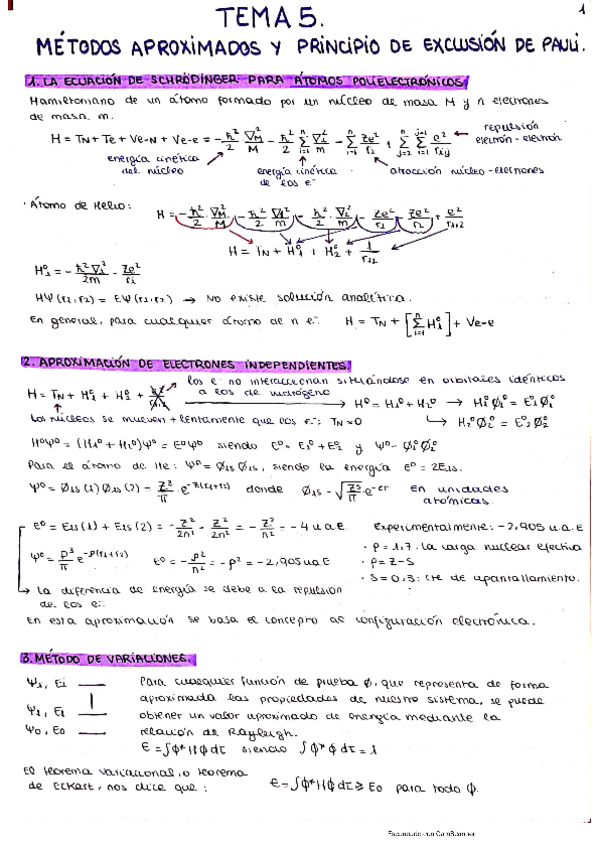 1
TEMA 5.
MÉTODOS APROXIMADOS Y PRINCIPIO DE EXCLUSIÓN DE PAULI.
1. LA ECUACIÓN DE SCHRÖDINGER PARA ÁTOMOS POLIELECTRÓNICOS
Hamiltoniano de un átomo formado por un núcleo de masa M y n electrones
de masa m.
H = TN + Te + Ve-N + Ve-e = -ħ²/2 ∇²M/M - ħ²/2 Σ ∇²i/m - Σ Ze²/ri + Σ Σ e²/rij
repulsión
electrón-electrón
energía cinética
del núcleo
energía cinética
de los e⁻
atracción núcleo-electrones
· Átomo de Helio:
H = -ħ²/2 · ∇²M/M - ħ²/2 ∇²1/m - ħ²/2 · ∇²2/m - Ze²/r1 - Ze²/r2 + e²/r1,2
H = TN + H°1 + H°2 + 1/r12
H°i = -ħ²∇²i/2m - Ze²/ri
HΨ(r1,r2) = EΨ(r1,r2) → No existe solución analítica.
En general, para cualquier átomo de n e⁻: H = TN + [Σ H°i] + Ve-e
2. APROXIMACIÓN DE ELECTRONES INDEPENDIENTES.
los e⁻ no interaccionan situándose en orbitales idénticos
a los de hidrógeno
H = TN + H°1 + H°2 + 1/r1,2 → H° = H1° + H2° → H1°Ø1° = E1°Ø1°
Los núcleos se mueven + lentamente que los e⁻: TN≈0 → H2°Ø2° = E2°Ø2°
H°Ψ° = (H1° + H2°)Ψ° = E°Ψ° siendo E° = E1° + E2° y Ψ° = Ø1°Ø2°
Para el átomo de He: Ψ° = Ø1s Ø1s, siendo la energía E° = 2E1s.
Ψ° = Ø1s(1) Ø1s(2) = Z³/π · e^-Z(r1+r2) donde Ø1s = √Z³/π e^-Zr en unidades
atómicas.
E° = E1s(1) + E1s(2) = -Z²/2n² - Z²/2n² = -Z²/n² = -4 u.a.E Experimentalmente: -2,905 u.a.E
Ψ° = P³/π e^-P(r1+r2) E° = -P²/n² = -P² = -2,905 u.a.E
· P = 1,7. La carga nuclear efectiva
· P = Z-S
· S = 0,3: cte de apantallamiento.
La diferencia de energía se debe a la repulsión
de los e⁻.
En esta aproximación se basa el concepto de configuración electrónica.
3. MÉTODO DE VARIACIONES.
Ψi, Ei
Ψ1, E1
Ψ0, E0
Para cualquier función de prueba Φ, que representa de forma
aproximada las propiedades de nuestro sistema, se puede
obtener un valor aproximado de energía mediante la
relación de Rayleigh.
E = ∫Φ*HΦ dτ siendo ∫Φ*Φ dτ = 1
El teorema variacional, o teorema
de Eckart, nos dice que: E = ∫Φ*HΦ dτ ≥ E0 para todo Φ.
Escaneado con CamScanner